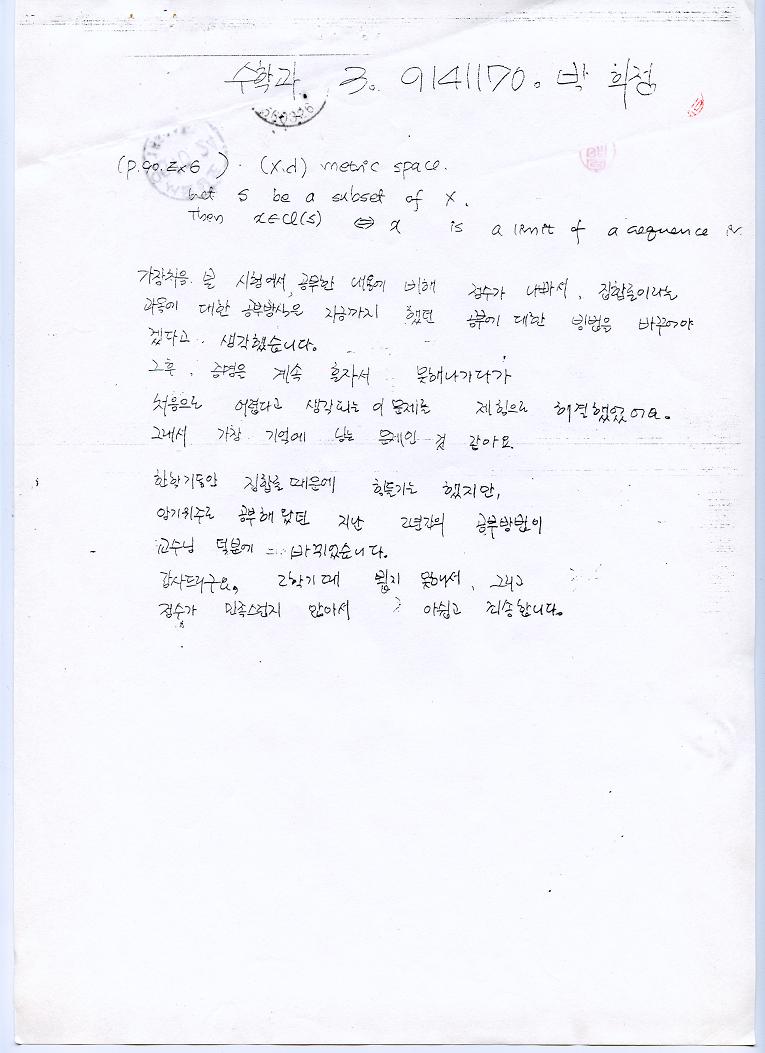 수학과 3. 9141170. 박 희정
(p.90. Ex6 ). (X,d) metric space.
Let S be a subset of X.
Then x∈Cl(S) ⇔ x is a limit of a sequence in
가장처음 본 시험에서, 공부한 내용에 비해 점수가 나빠서, 집합론이라는
과목에 대한 공부방식은 지금까지 했던 공부에 대한 방법을 바꾸어야
겠다고 생각했습니다.
그후, 증명은 계속 혼자서 못해나가다가
처음으로 어렵다고 생각되는 이 문제를 제힘으로 해결했었어요.
그래서 가장 기억에 남는 문제인 것 같아요.
한학기동안 집합론 때문에 힘들기는 했지만,
암기위주로 공부해 왔던 지난 2년간의 공부방법이
교수님 덕분에 바뀌었습니다.
감사드리구요. 2학기때 뵙지 못해서, 그리고
점수가 만족스럽지 않아서 아쉽고 죄송합니다.